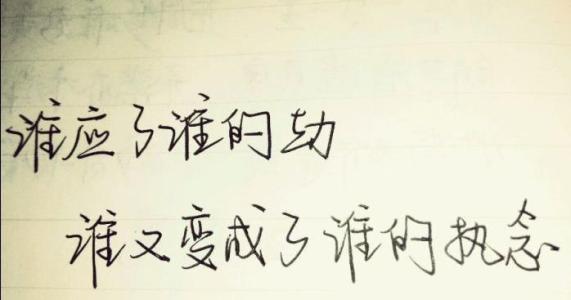 谁应了谁的劫
谁又变成了谁的执念